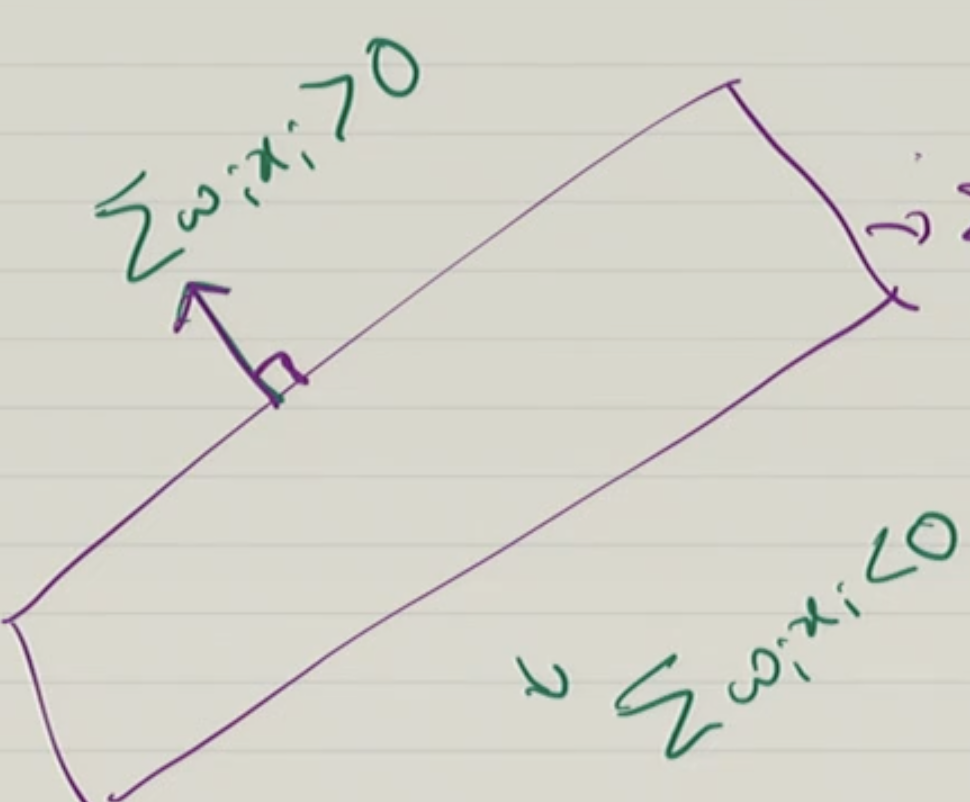 Σwᵢxᵢ>0
Σwᵢxᵢ<0